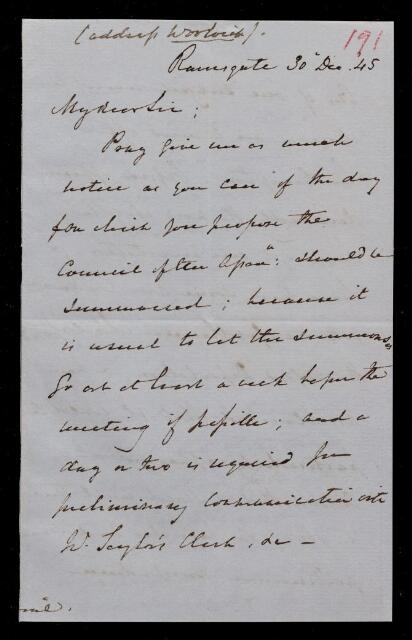 (address Woolwich).
191
Ramsgate 30 Dec. 45
My dear Sir;
Pray give me as much
notice as you can of the day
for which you propose the
Council of the Asson: should be
summoned; because it
is usual to let the summonses
go out at least a week before the
meeting if possible; and a
day or two is required for
preliminary communication with
Mr. Taylor's Clerk, &c –